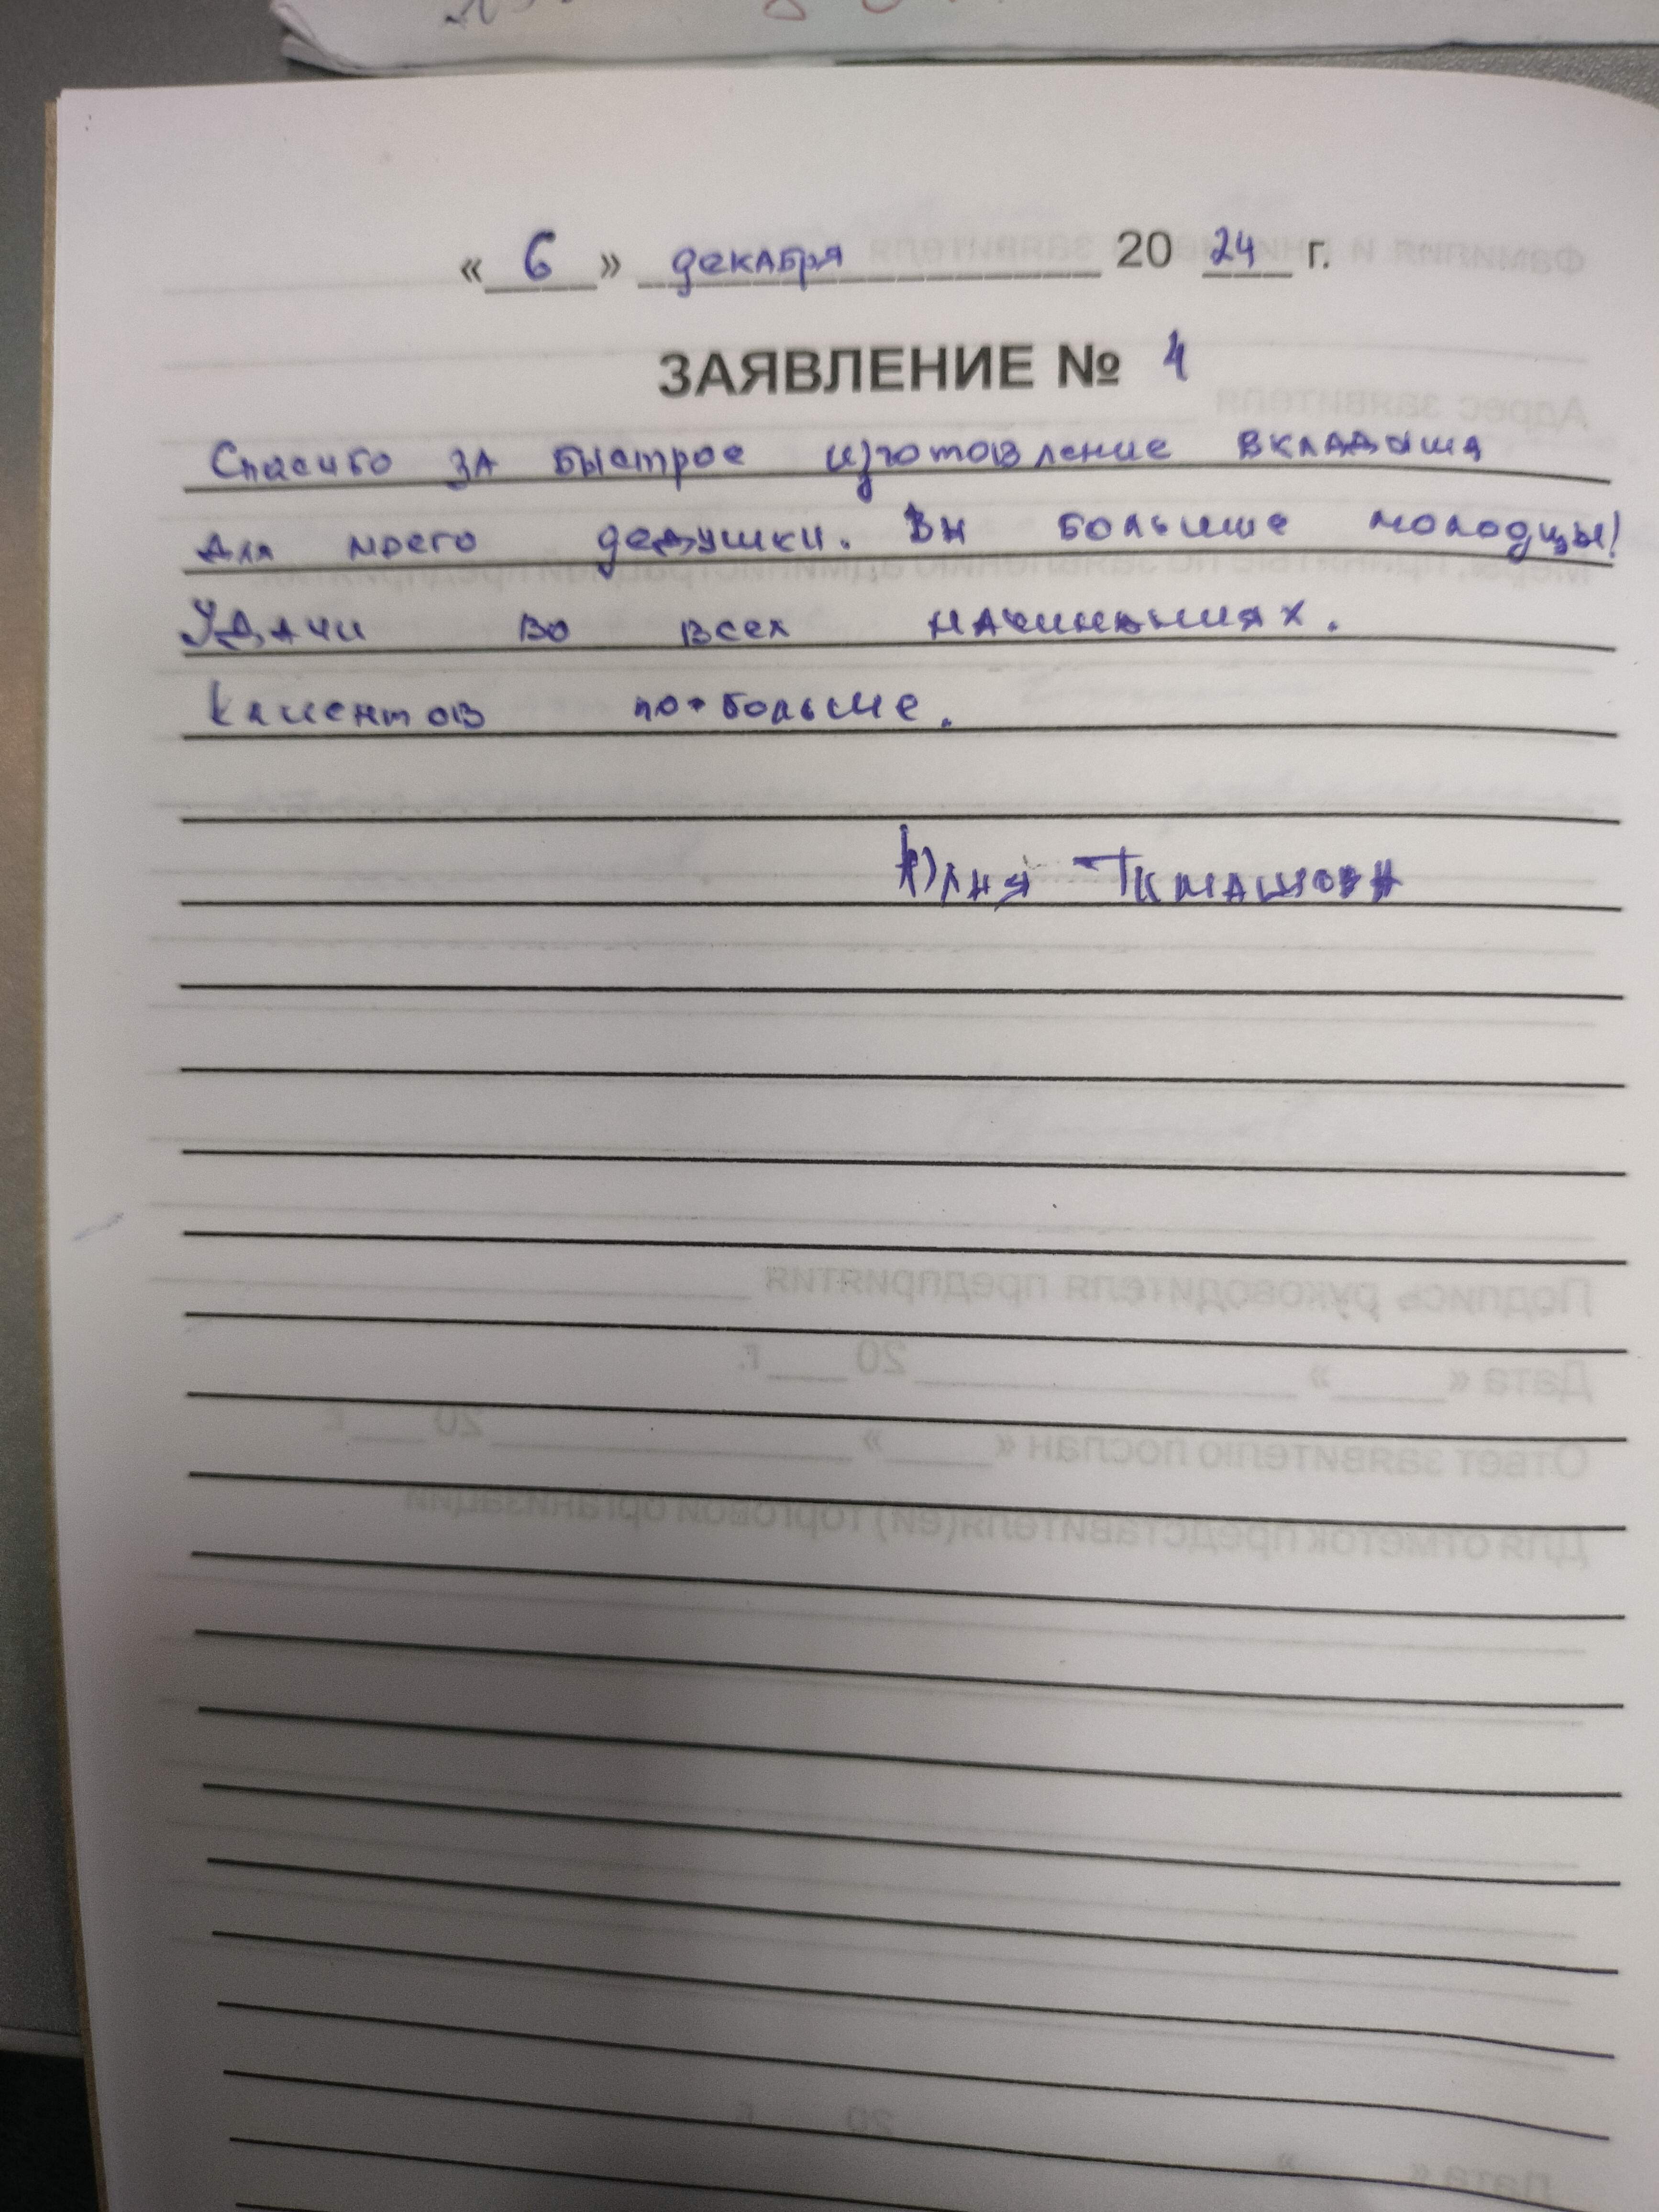 « 6 » декабря 20 24 г.
ЗАЯВЛЕНИЕ № 4
Спасибо за быстрое изготовление вкладыша
для моего дедушки. Вы большие молодцы!
Удачи во всех начинаниях.
Клиентов по-больше.
Юлия